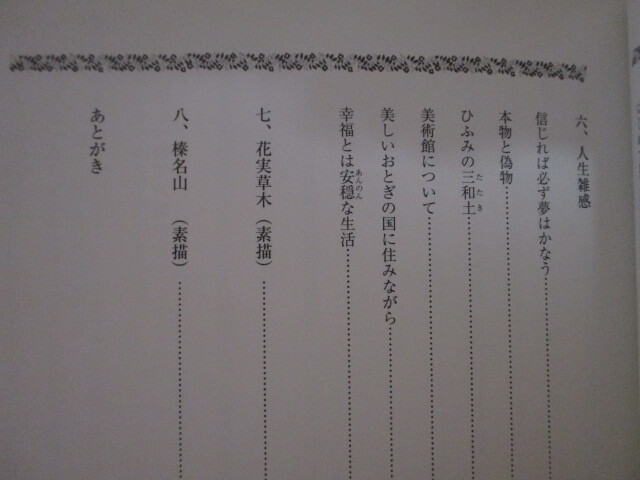 六、人生雑感
信じれば必ず夢はかなう……………………
本物と偽物……………………
ひふみの三和土……………………
たたき
美術館について……………………
美しいおとぎの国に住みながら……………………
幸福とは安穏な生活……………………
あんのん
七、花実草木(素描)……………………
八、榛名山 (素描)……………………
あとがき